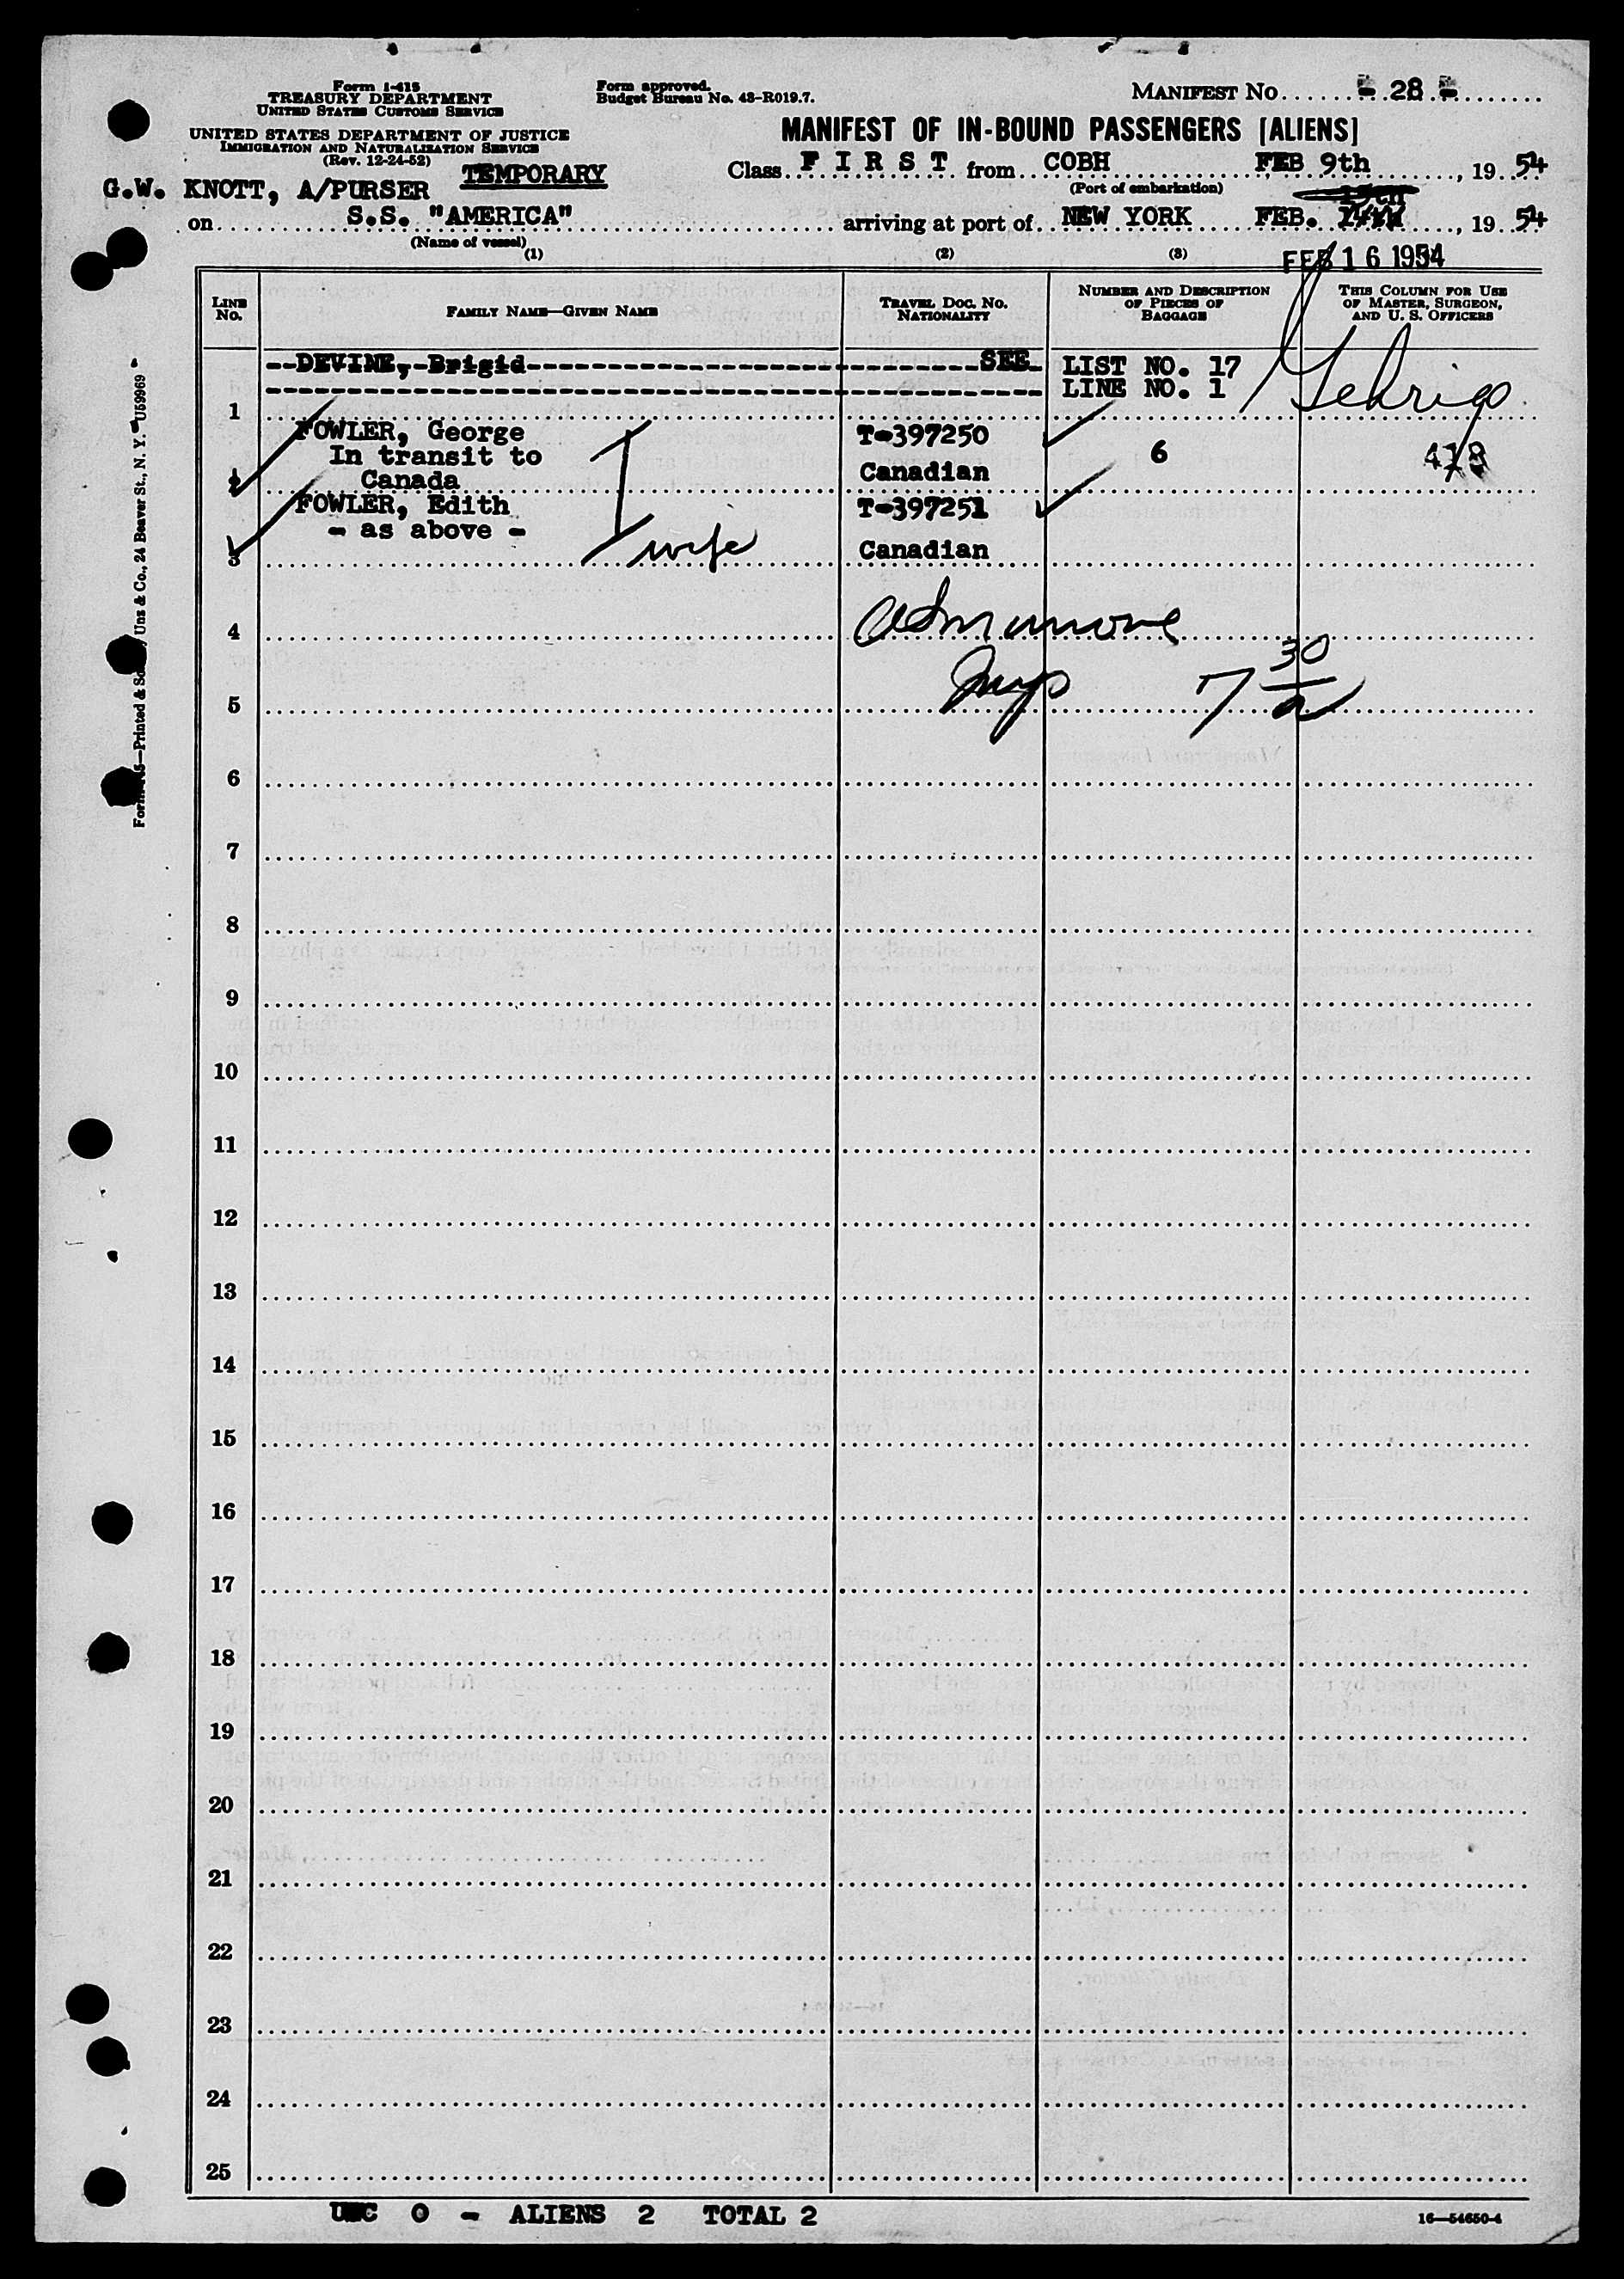 Form I-415
TREASURY DEPARTMENT
UNITED STATES CUSTOMS SERVICE
UNITED STATES DEPARTMENT OF JUSTICE
IMMIGRATION AND NATURALIZATION SERVICE
(Rev. 12-24-52)
Form approved.
Budget Bureau No. 43-R019.7.
MANIFEST NO. - 28 -
MANIFEST OF IN-BOUND PASSENGERS [ALIENS]
TEMPORARY
Class F I R S T from COBH FEB 9th, 19 54
(Port of embarkation)
G.W. KNOTT, A/PURSER
on S.S. "AMERICA" arriving at port of NEW YORK FEB., 19 54
(Name of vessel)
FEB 16 1954
(1) (2) (3)
LINE NO. FAMILY NAME—GIVEN NAME TRAVEL DOC. NO. NATIONALITY NUMBER AND DESCRIPTION OF PIECES OF BAGGAGE THIS COLUMN FOR USE OF MASTER, SURGEON, AND U. S. OFFICERS
--DEVINE,-Brigid-----------------------------SEE- LIST NO. 17
LINE NO. 1
1
FOWLER, George T-397250
In transit to 6
Canada Canadian
2
FOWLER, Edith T-397251
- as above -
wife Canadian
3
4
5
7 30/a
6
7
8
9
10
11
12
13
14
15
16
17
18
19
20
21
22
23
24
25
USC 0 - ALIENS 2 TOTAL 2
16—54650-4
Uns & Co., 24 Beaver St., N. Y. - U59969 -